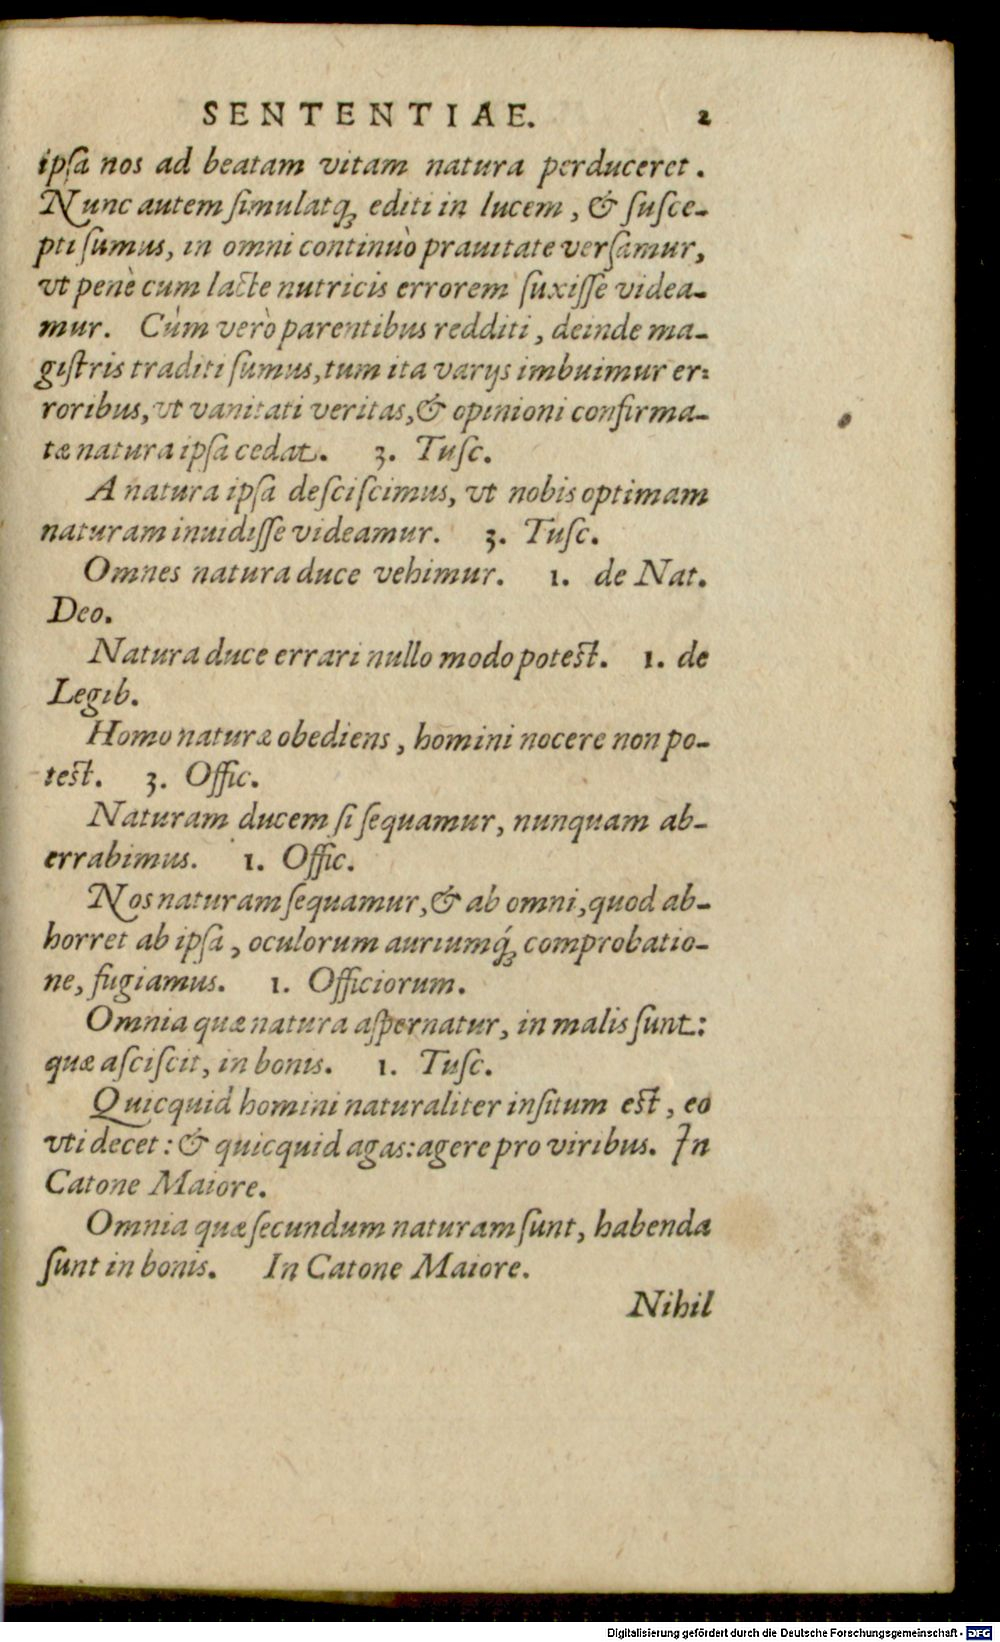 SENTENTIAE. 2
ipſa nos ad beatam vitam natura perduceret.
Nunc autem ſimulatq́ꝫ editi in lucem, & ſuſce-
pti ſumus, in omni continuò prauitate verſamur,
vt penè cum lacte nutricis errorem ſuxiſſe videa-
mur. Cùm verò parentibus redditi, deinde ma-
giſtris traditi ſumus, tum ita varijs imbuimur er-
roribus, vt vanitati veritas, & opinioni confirma-
tæ natura ipſa cedat. 3. Tuſc.
A natura ipſa deſciſcimus, vt nobis optimam
naturam inuidiſſe videamur. 3. Tuſc.
Omnes natura duce vehimur. 1. de Nat.
Deo.
Natura duce errari nullo modo poteſt. 1. de
Legib.
Homo naturæ obediens, homini nocere non po-
teſt. 3. Offic.
Naturam ducem ſi ſequamur, nunquam ab-
errabimus. 1. Offic.
Nos naturam ſequamur, & ab omni, quod ab-
horret ab ipſa, oculorum auriumq́ꝫ comprobatio-
ne, fugiamus. 1. Officiorum.
Omnia quæ natura aſpernatur, in malis ſunt:
quæ aſciſcit, in bonis. 1. Tuſc.
Quicquid homini naturaliter inſitum eſt, eo
vti decet: & quicquid agas: agere pro viribus. In
Catone Maiore.
Omnia quæ ſecundum naturam ſunt, habenda
ſunt in bonis. In Catone Maiore.
Nihil
Digitalisierung gefördert durch die Deutsche Forschungsgemeinschaft - DFG